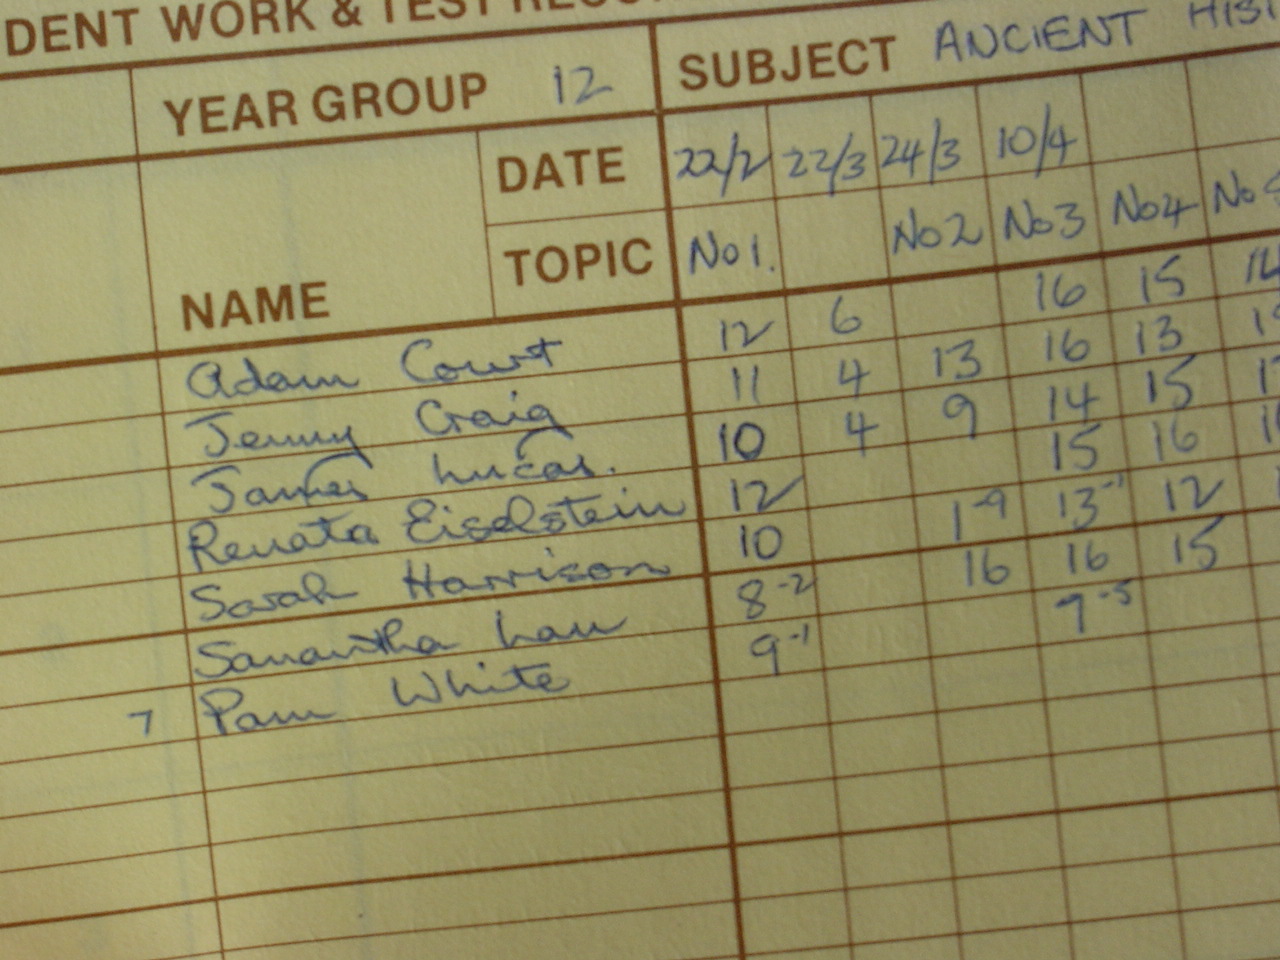 DENT WORK & TEST
YEAR GROUP 12 SUBJECT ANCIENT
DATE 22/2 22/3 24/3 10/4
TOPIC No 1. No 2 No 3 No 4 No
NAME
Adam Court 12 6 16 15 14
Jenny Craig 11 4 13 16 13
James Lucas. 10 4 9 14 15
Renata Eiselstein 12 15 16
Sarah Harrison 10 1-9 13-1 12
Samantha Law 8-2 16 16 15
7 Pam White 9-1